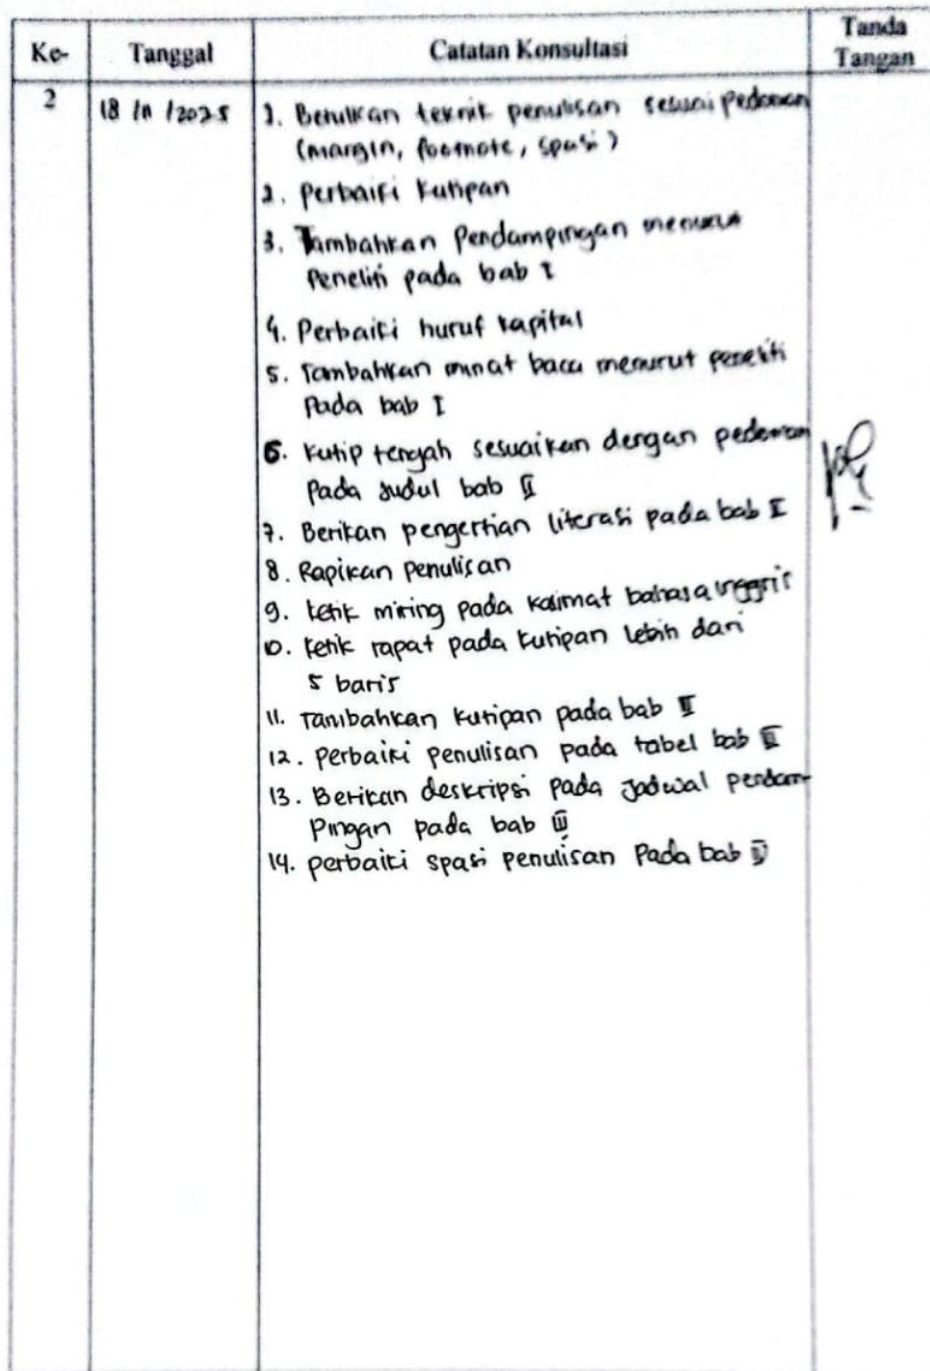 Ke- Tanggal Catatan Konsultasi Tanda Tangan
2 18 /11 /2025 1. Betulkan teknik penulisan sesuai pedoman
(margin, footnote, spasi)
2. Perbaiki kutipan
3. Tambahkan Pendampingan menurut
Peneliti pada bab I
4. Perbaiki huruf kapital
5. Tambahkan minat baca menurut peneliti
Pada bab I
6. Kutip tengah sesuaikan dengan pedoman
Pada judul bab II
7. Berikan pengertian literasi pada bab II
8. Rapikan penulisan
9. ketik miring pada kalimat bahasa inggris
10. ketik rapat pada kutipan lebih dari
5 baris
11. Tambahkan kutipan pada bab II
12. Perbaiki penulisan pada tabel bab III
13. Berikan deskripsi pada Jadwal pendam-
Pingan pada bab III
14. perbaiki spasi penulisan Pada bab IV